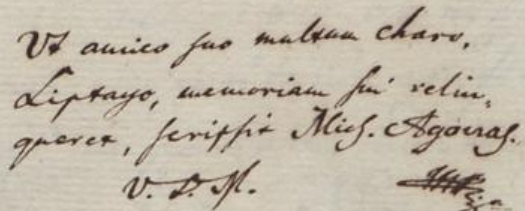 Ut amico suo multum charo,
Liptayo, memoriam sui relin,
queret, scripsit Mich. Agoras.
V. D. M.